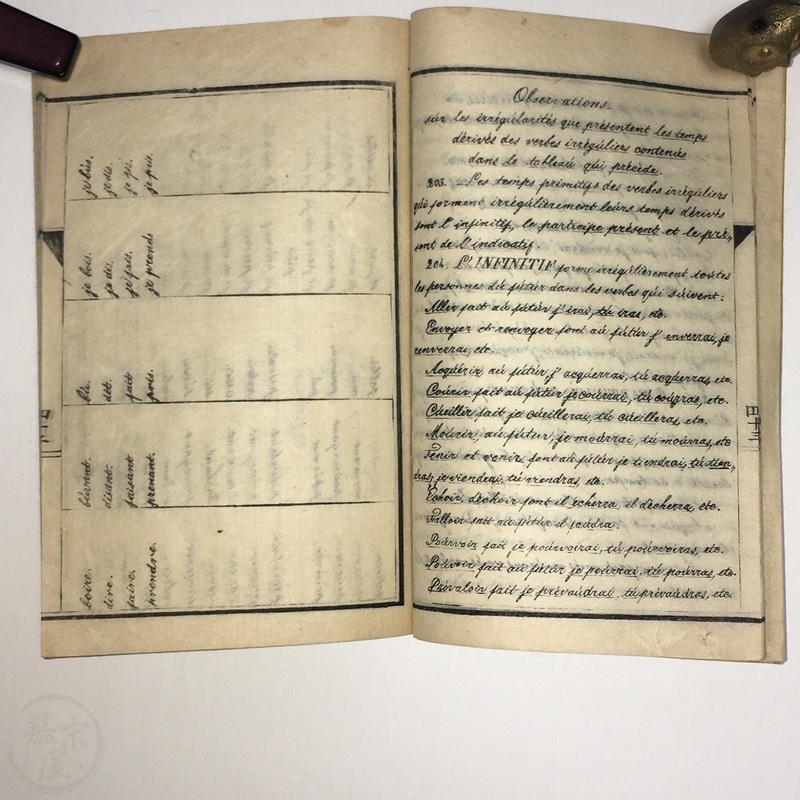 boire. buvant. bu. je bois. je bus.
dire. disant. dit. je dis. je dis.
faire. faisant fait je fais. je fis.
prendre. prenant. pris. je prends je pris.
Observations.
sur les irrégularités que présentent les temps
dérivés des verbes irréguliers contenus
dans le tableau qui précède.
203. — Les temps primitifs des verbes irréguliers
qui forment irrégulièrement leurs temps dérivés
sont l'infinitif, le participe présent et le pré-
sent de l'indicatif.
204. L'INFINITIF forme irrégulièrement toutes
les personnes du futur dans les verbes qui suivent:
Aller fait au futur j'irai, tu iras, etc.
Envoyer et renvoyer font au futur j'enverrai, je
renverrai, etc.
Acquérir, au futur, j'acquerrai, tu acquerras, etc.
Courir fait au futur je courrai, tu courras, etc.
Cueillir fait je cueillerai, tu cueilleras, etc.
Mourir, au futur, je mourrai, tu mourras, etc
Tenir et venir font au futur je tiendrai, tu tien-
dras, je viendrai, tu viendras, etc.
Echoir, déchoir font il écherra, il décherra, etc.
Falloir fait au futur il faudra.
Pourvoir fait je pourvoirai, tu pourvoiras, etc.
Pouvoir fait au futur je pourrai, tu pourras, etc.
Prévaloir fait je prévaudrai, tu prévaudras, etc.
幕末屋